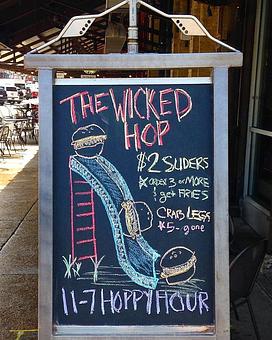 THE WICKED
HOP
$2 SLIDERS
* ORDER 3 or MORE
& get FRIES
CRAB LEGS
* 5- gone
11-7 HOPPY HOUR